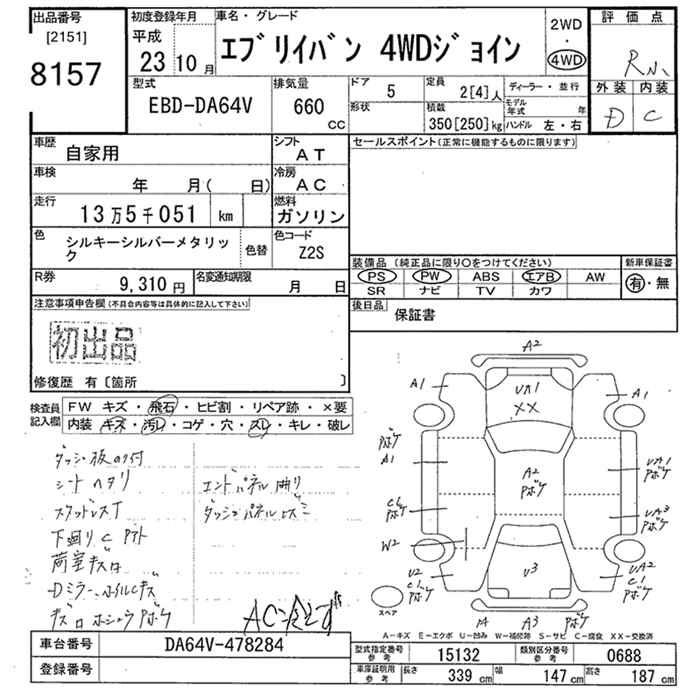 出品番号
[2151]
8157
初度登録年月
平成
23 10月
車名・グレード
エブリイバン 4WDジョイン
2WD
・
4WD
評価点
外装 内装
D C
型式
EBD-DA64V
排気量
660
CC
ドア
5
定員
2[4]人
ディーラー・並行
形状
積載
350[250]kg
モデル年式 年
ハンドル 左・右
車歴
自家用
シフト
AT
車検
年 月( 日)
冷房
AC
走行
13万5千051 km
燃料
ガソリン
色
シルキーシルバーメタリック
色替
色コード
Z2S
R券
9,310円
名変通知期限
月 日
セールスポイント(正常に機能するものに限ります)
装備品(純正品に限り○をつけてください)
新車保証書
PS PW ABS エアB AW
SR ナビ TV カワ
有・無
後日品
保証書
注意事項申告欄(不具合内容等は具体的に記入して下さい)
初出品
修復歴 有〔箇所 〕
検査員記入欄
FW キズ・飛石・ヒビ割・リペア跡・×要
内装 キズ・汚レ・コゲ・穴・スレ・キレ・破レ
シートヘタリ
エンドパネル曲り
スタッドレスT
下回りC
A2
A1
UA1
XX
A1
A1
A2
UA1
UA3
W2
U2
C1
UA2
C1
A3
スペア
A-キズ E-エクボ U-凹み W-補修跡 S-サビ C-腐食 XX-交換済
車台番号
DA64V-478284
登録番号
型式指定番号
参考
15132
類別区分番号
参考
0688
車庫証明用
参考
長さ
339 cm
幅
147 cm
高さ
187 cm